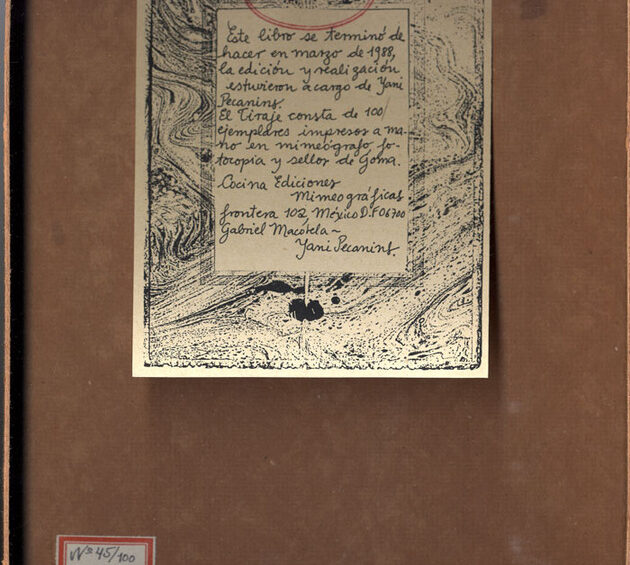 Este libro se terminó de
hacer en marzo de 1988,
la edición y realización
estuvieron a cargo de Yani
Pecanins.
El Tiraje consta de 100/
ejemplares impresos a ma-
no en mimeógrafo fo-
tocopia y sellos de goma.
Cocina Ediciones
Mimeográficas
frontera 102, México D.F 06700
Gabriel Macotela ~
Yani Pecanins.
Nº 45/100